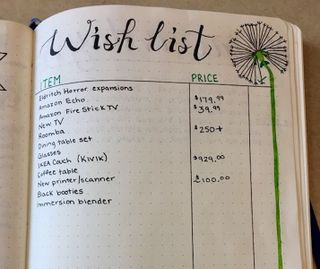 Wish list
ITEM PRICE
Eldritch Horror expansions
Amazon Echo $179.99
Amazon Fire Stick TV $39.99
New TV
Roomba $250+
Dining table set
Glasses
IKEA Couch (KIVIK) $929.00
Coffee table
New printer/scanner £100.00
Black booties
Immersion blender